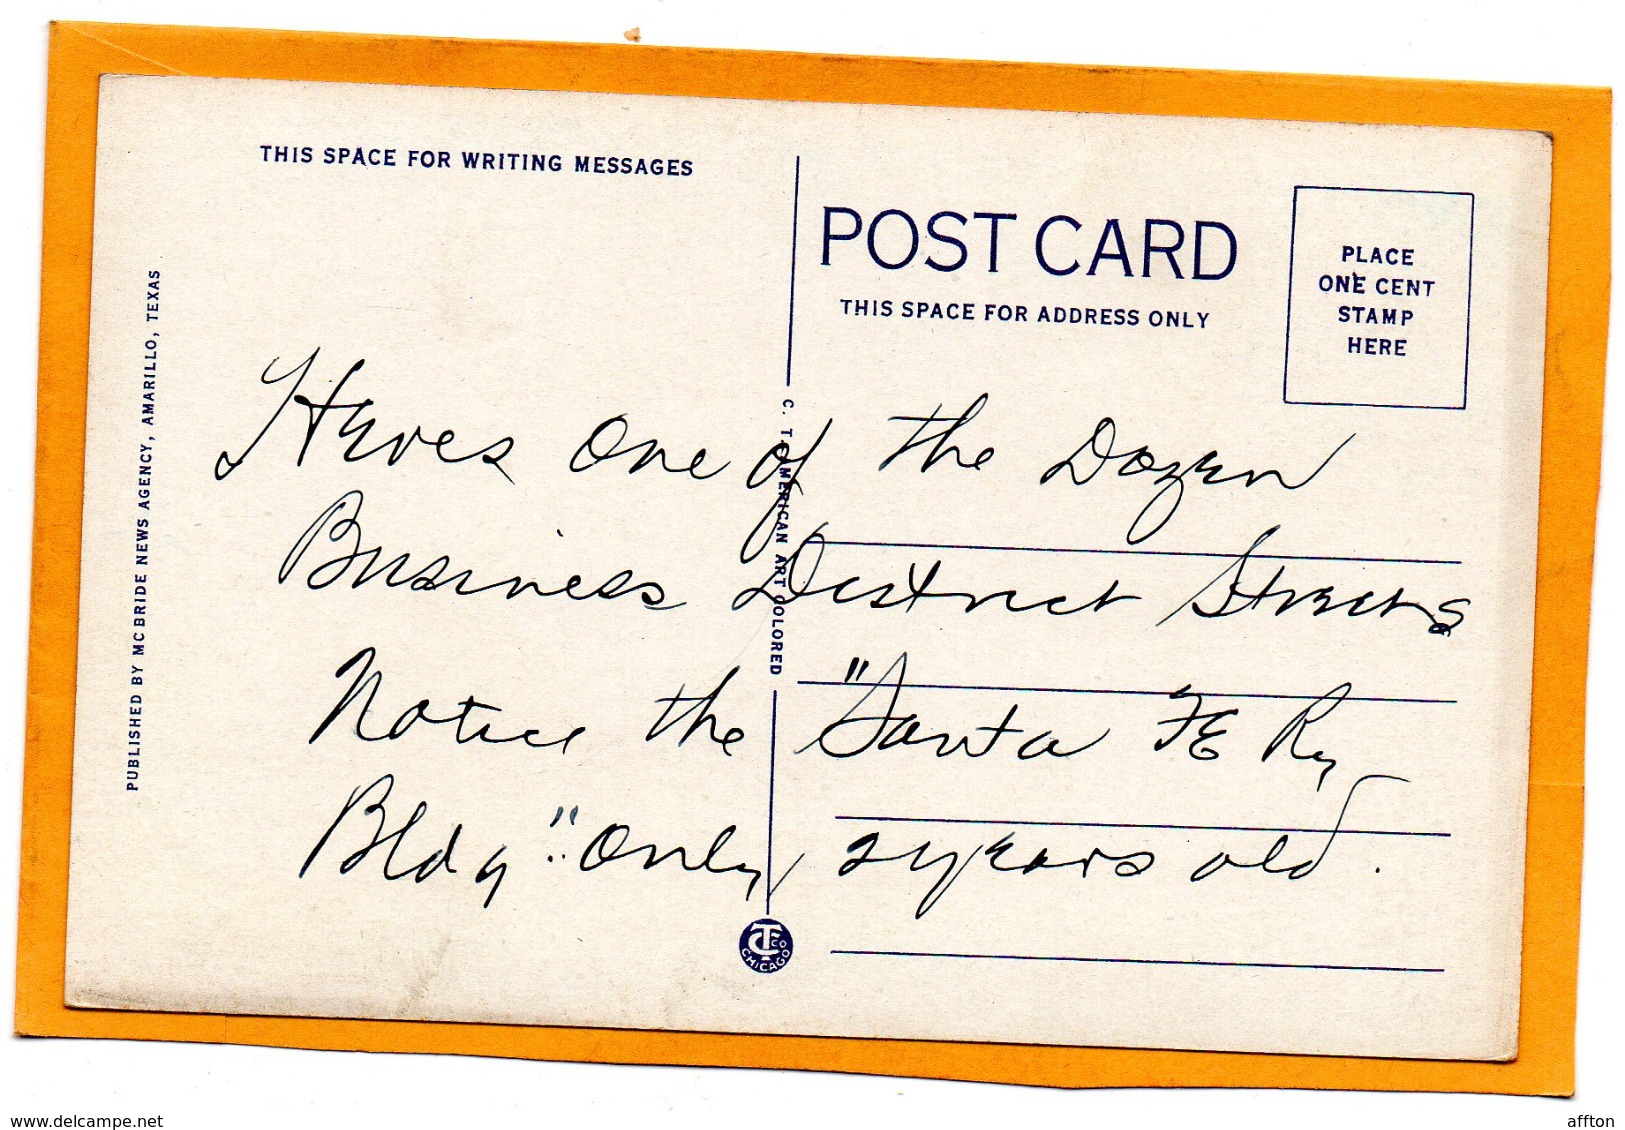 THIS SPACE FOR WRITING MESSAGES
POST CARD
THIS SPACE FOR ADDRESS ONLY
PLACE
ONE CENT
STAMP
HERE
PUBLISHED BY MC BRIDE NEWS AGENCY, AMARILLO, TEXAS
C. T. AMERICAN ART COLORED
Heres one of the Dozen
Business District Streets
Notice the "Santa Fe Ry
Bldg" only 2 years old.
CT CO
CHICAGO
www.delcampe.net
affton